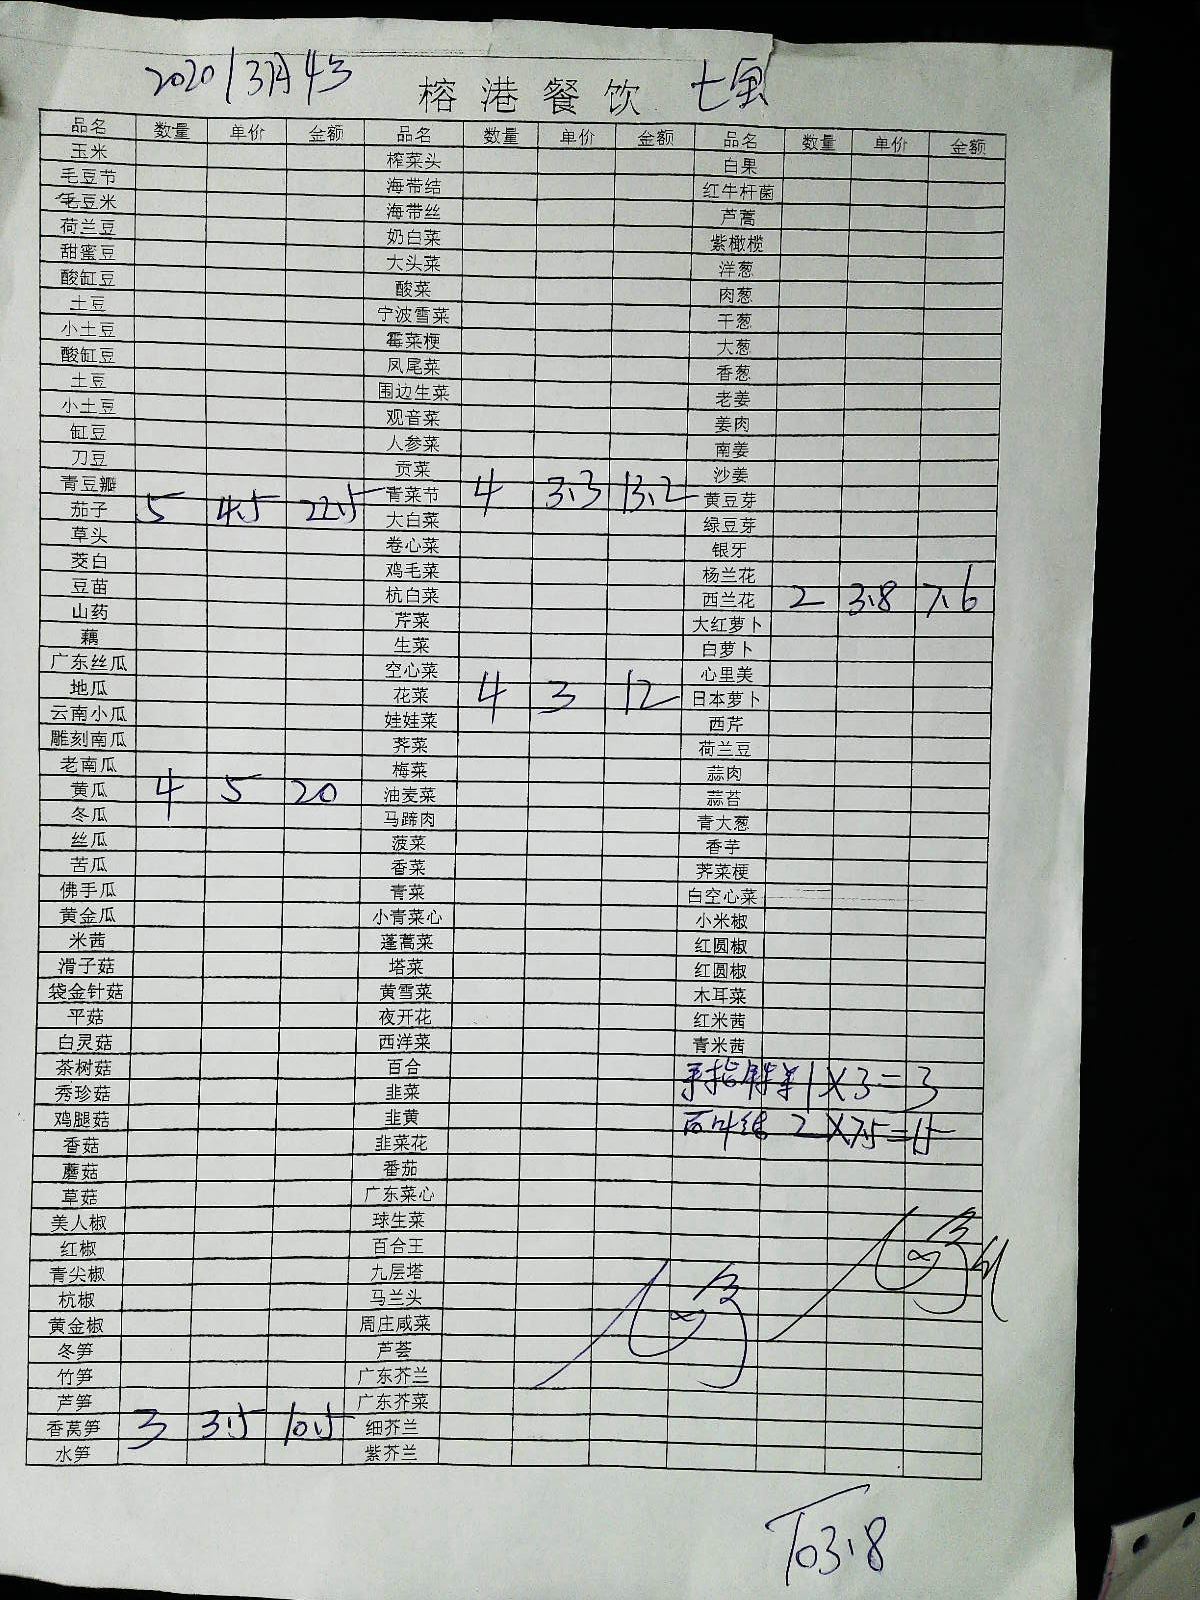 2020/3月4号 榕港餐饮 七宝
品名 数量 单价 金额 品名 数量 单价 金额 品名 数量 单价 金额
玉米 榨菜头 白果
毛豆节 海带结 红牛杆菌
毛豆米 海带丝 芦蒿
荷兰豆 奶白菜 紫橄榄
甜蜜豆 大头菜 洋葱
酸缸豆 酸菜 肉葱
土豆 宁波雪菜 干葱
小土豆 霉菜梗 大葱
酸缸豆 凤尾菜 香葱
土豆 围边生菜 老姜
小土豆 观音菜 姜肉
缸豆 人参菜 南姜
刀豆 贡菜 沙姜
青豆瓣 青菜节 4 3.3 13.2 黄豆芽
茄子 5 4.5 22.5 大白菜 绿豆芽
草头 卷心菜 银牙
茭白 鸡毛菜 杨兰花
豆苗 杭白菜 西兰花 2 3.8 7.6
山药 芹菜 大红萝卜
藕 生菜 白萝卜
广东丝瓜 空心菜 心里美
地瓜 花菜 4 3 12 日本萝卜
云南小瓜 娃娃菜 西芹
雕刻南瓜 荠菜 荷兰豆
老南瓜 梅菜 蒜肉
黄瓜 4 5 20 油麦菜 蒜苔
冬瓜 马蹄肉 青大葱
丝瓜 菠菜 香芋
苦瓜 香菜 荠菜梗
佛手瓜 青菜 白空心菜
黄金瓜 小青菜心 小米椒
米茜 蓬蒿菜 红圆椒
滑子菇 塔菜 红圆椒
袋金针菇 黄雪菜 木耳菜
平菇 夜开花 红米茜
白灵菇 西洋菜 青米茜
茶树菇 百合 1×3=3
秀珍菇 韭菜
鸡腿菇 韭黄 百叶结 2×7.5=15
香菇 韭菜花
蘑菇 番茄
草菇 广东菜心
美人椒 球生菜
红椒 百合王
青尖椒 九层塔
杭椒 马兰头
黄金椒 周庄咸菜
冬笋 芦荟
竹笋 广东芥兰
芦笋 广东芥菜
香莴笋 3 3.5 10.5 细芥兰
水笋 紫芥兰
103.8